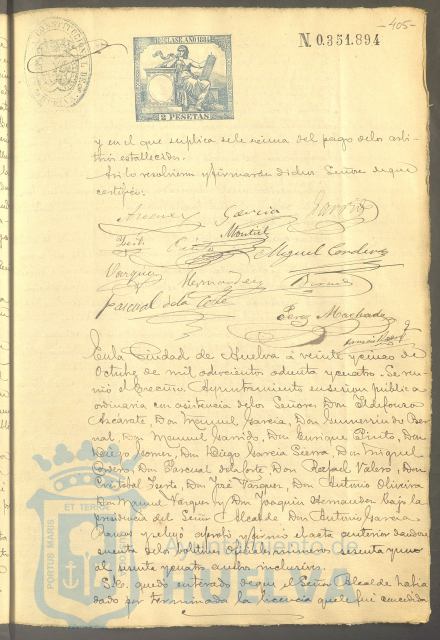 -405-
CLASE. AÑO 1884
N. 0.351.894
2 PESETAS
y en el que suplica se le exima del pago de los arbi-
trios establecidos.
Así lo resolvieron y firmaron dichos Señores de que
certifico:
García Garrido
Montiel
Miguel Cordero
Vazquez Hernandez
Pascual de la Corte
Perez Machado
En la Ciudad de Huelva á veinte y cinco de
Octubre de mil ochocientos ochenta y cuatro. Se reu-
nió el Excmo. Ayuntamiento en sesion publica
ordinaria con asistencia de los Señores Don Ildefonso
Azcárate, Don Manuel García, Don Ber-
nal, Don Manuel Garrido, Don Enrique Pinto, Don
Diego Gomez, Don Diego García Sierra, Don Miguel
Cordero, Don Pascual de la Corte, Don Rafael Valero, Don
Cristobal Yerte, Don José Vazquez, Don Antonio Oliveira
Don Manuel Vazquez y Don Joaquin Hernandez bajo la
presidencia del Señor Alcalde, Don Antonio García
Ramos y leyó aprobó y firmó el acta anterior dandose
cuenta de los Boletines oficiales numero sesenta y uno
al sesenta y cuatro ambos inclusives.
S.E. quedó enterado de que el Señor Alcalde habia
dado por terminada la licencia que le fué concedida
PORTUS MARIS ET TERRAE
Ayuntamiento de
HUELVA